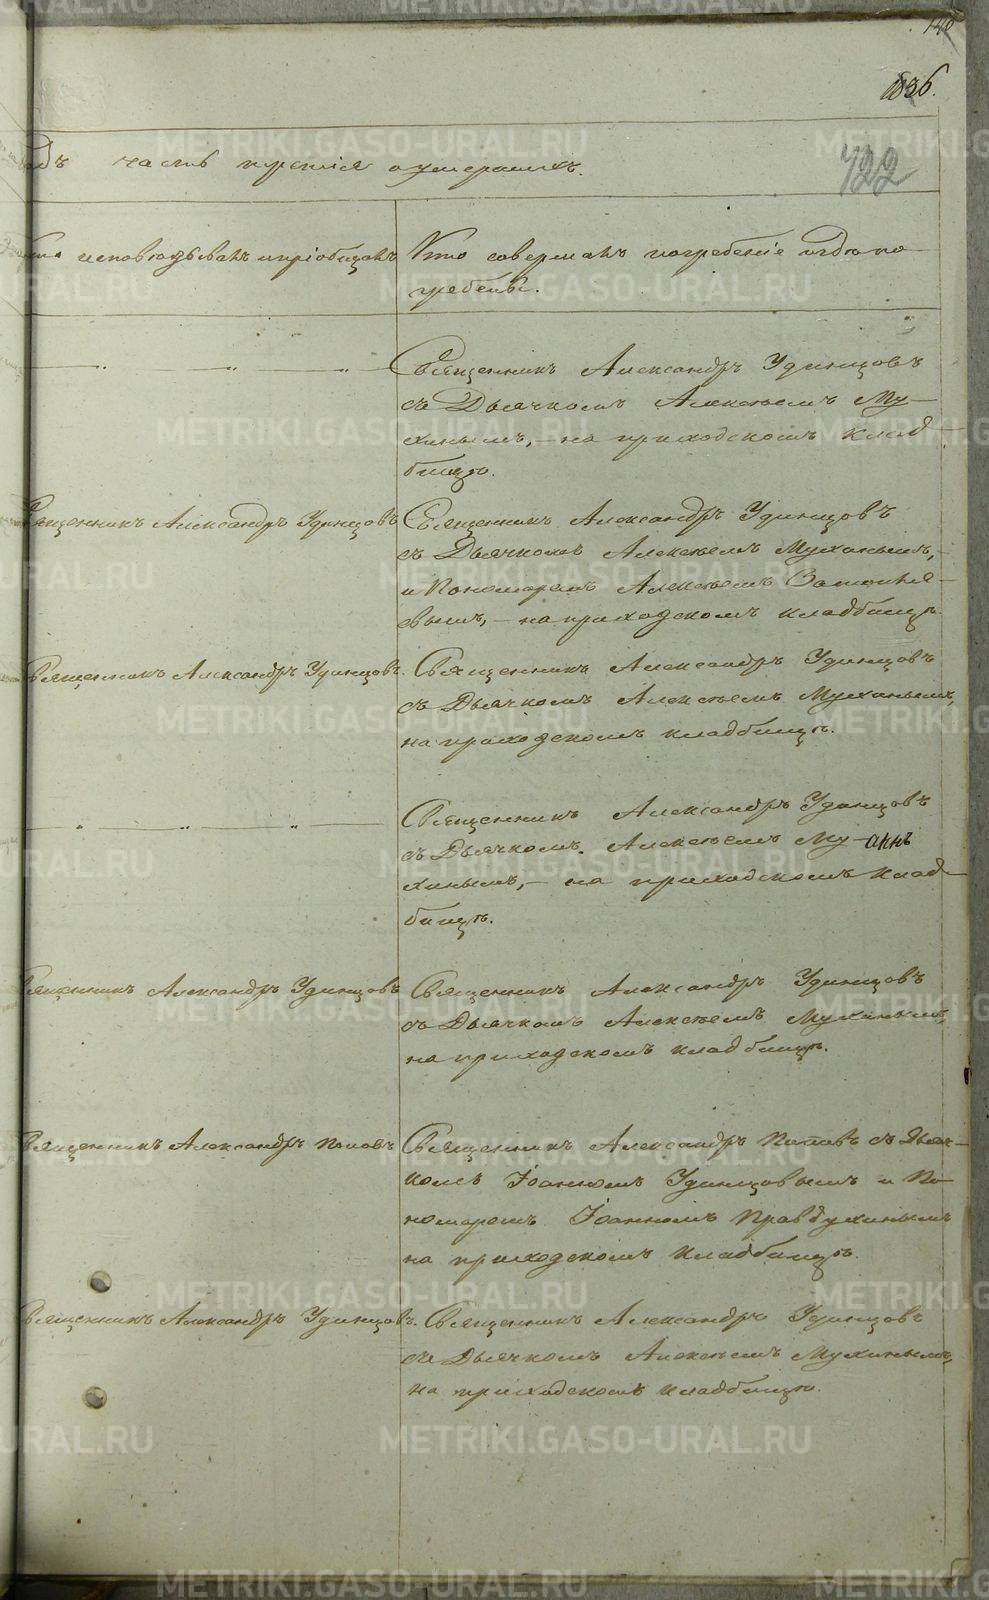 140
1036.
одъ часть третія о умершихъ.
722
Кто исповѣдывалъ и пріобщалъ
Кто совершалъ погребеніе и гдѣ по
гребены.
Священникъ Александръ Удинцовъ
съ Дьячкомъ Алексѣемъ Му-
хинымъ, - на приходскомъ клад
бищѣ.
Священникъ Александръ Удинцовъ
Священникъ Александръ Удинцовъ
съ Дьячкомъ Алексѣемъ Мухинымъ,
и Пономаремъ Алексѣемъ
вымъ, - на приходскомъ кладбищѣ
Священникъ Александръ Удинцовъ.
Священникъ Александръ Удинцовъ
съ Дьячкомъ Алексѣемъ Мухинымъ,
на приходскомъ кладбищѣ.
Священникъ Александръ Удинцовъ
съ Дьячкомъ Алексѣемъ Му-
хинымъ, - на приходскомъ клад
бищѣ.
Священникъ Александръ Удинцовъ
Священникъ Александръ Удинцовъ
съ Дьячкомъ Алексѣемъ Мухинымъ,
на приходскомъ кладбищѣ.
Священникъ Александръ Поповъ
Священникъ Александръ Поповъ съ Дьяч-
комъ Іоанномъ Удинцовымъ и По-
номаремъ Іоанномъ Правдухинымъ
на приходскомъ кладбищѣ.
Священникъ Александръ Удинцовъ.
Священникъ Александръ Удинцовъ
съ Дьячкомъ Алексѣемъ Мухинымъ,
на приходскомъ кладбищѣ.
METRIKI.GASO-URAL.RU